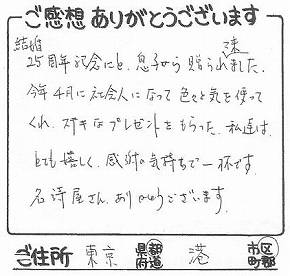 ご感想 ありがとうございます
結婚
25周年記念にと、息子から贈られました。
今年4月に社会人になって色々と気を使って
くれ、ステキなプレゼントをもらった私達は、
とても嬉しく、感謝の気持ちで一杯です。
名詩屋さん、ありがとうございます。
ご住所 東京 都道府県 港 市区町郡